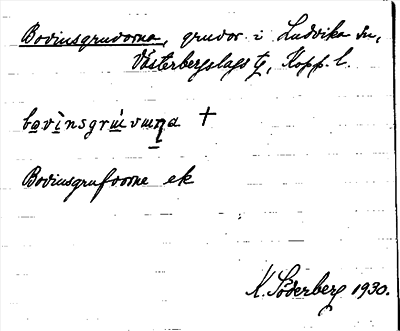 Bovinsgruvorna, gruvor i Ludvika sn,
Västerbergslags tg, Kopp. l.
bovinsgruvωṇa †
Bovinsgrufvorne ek
K. Söderberg 1930.